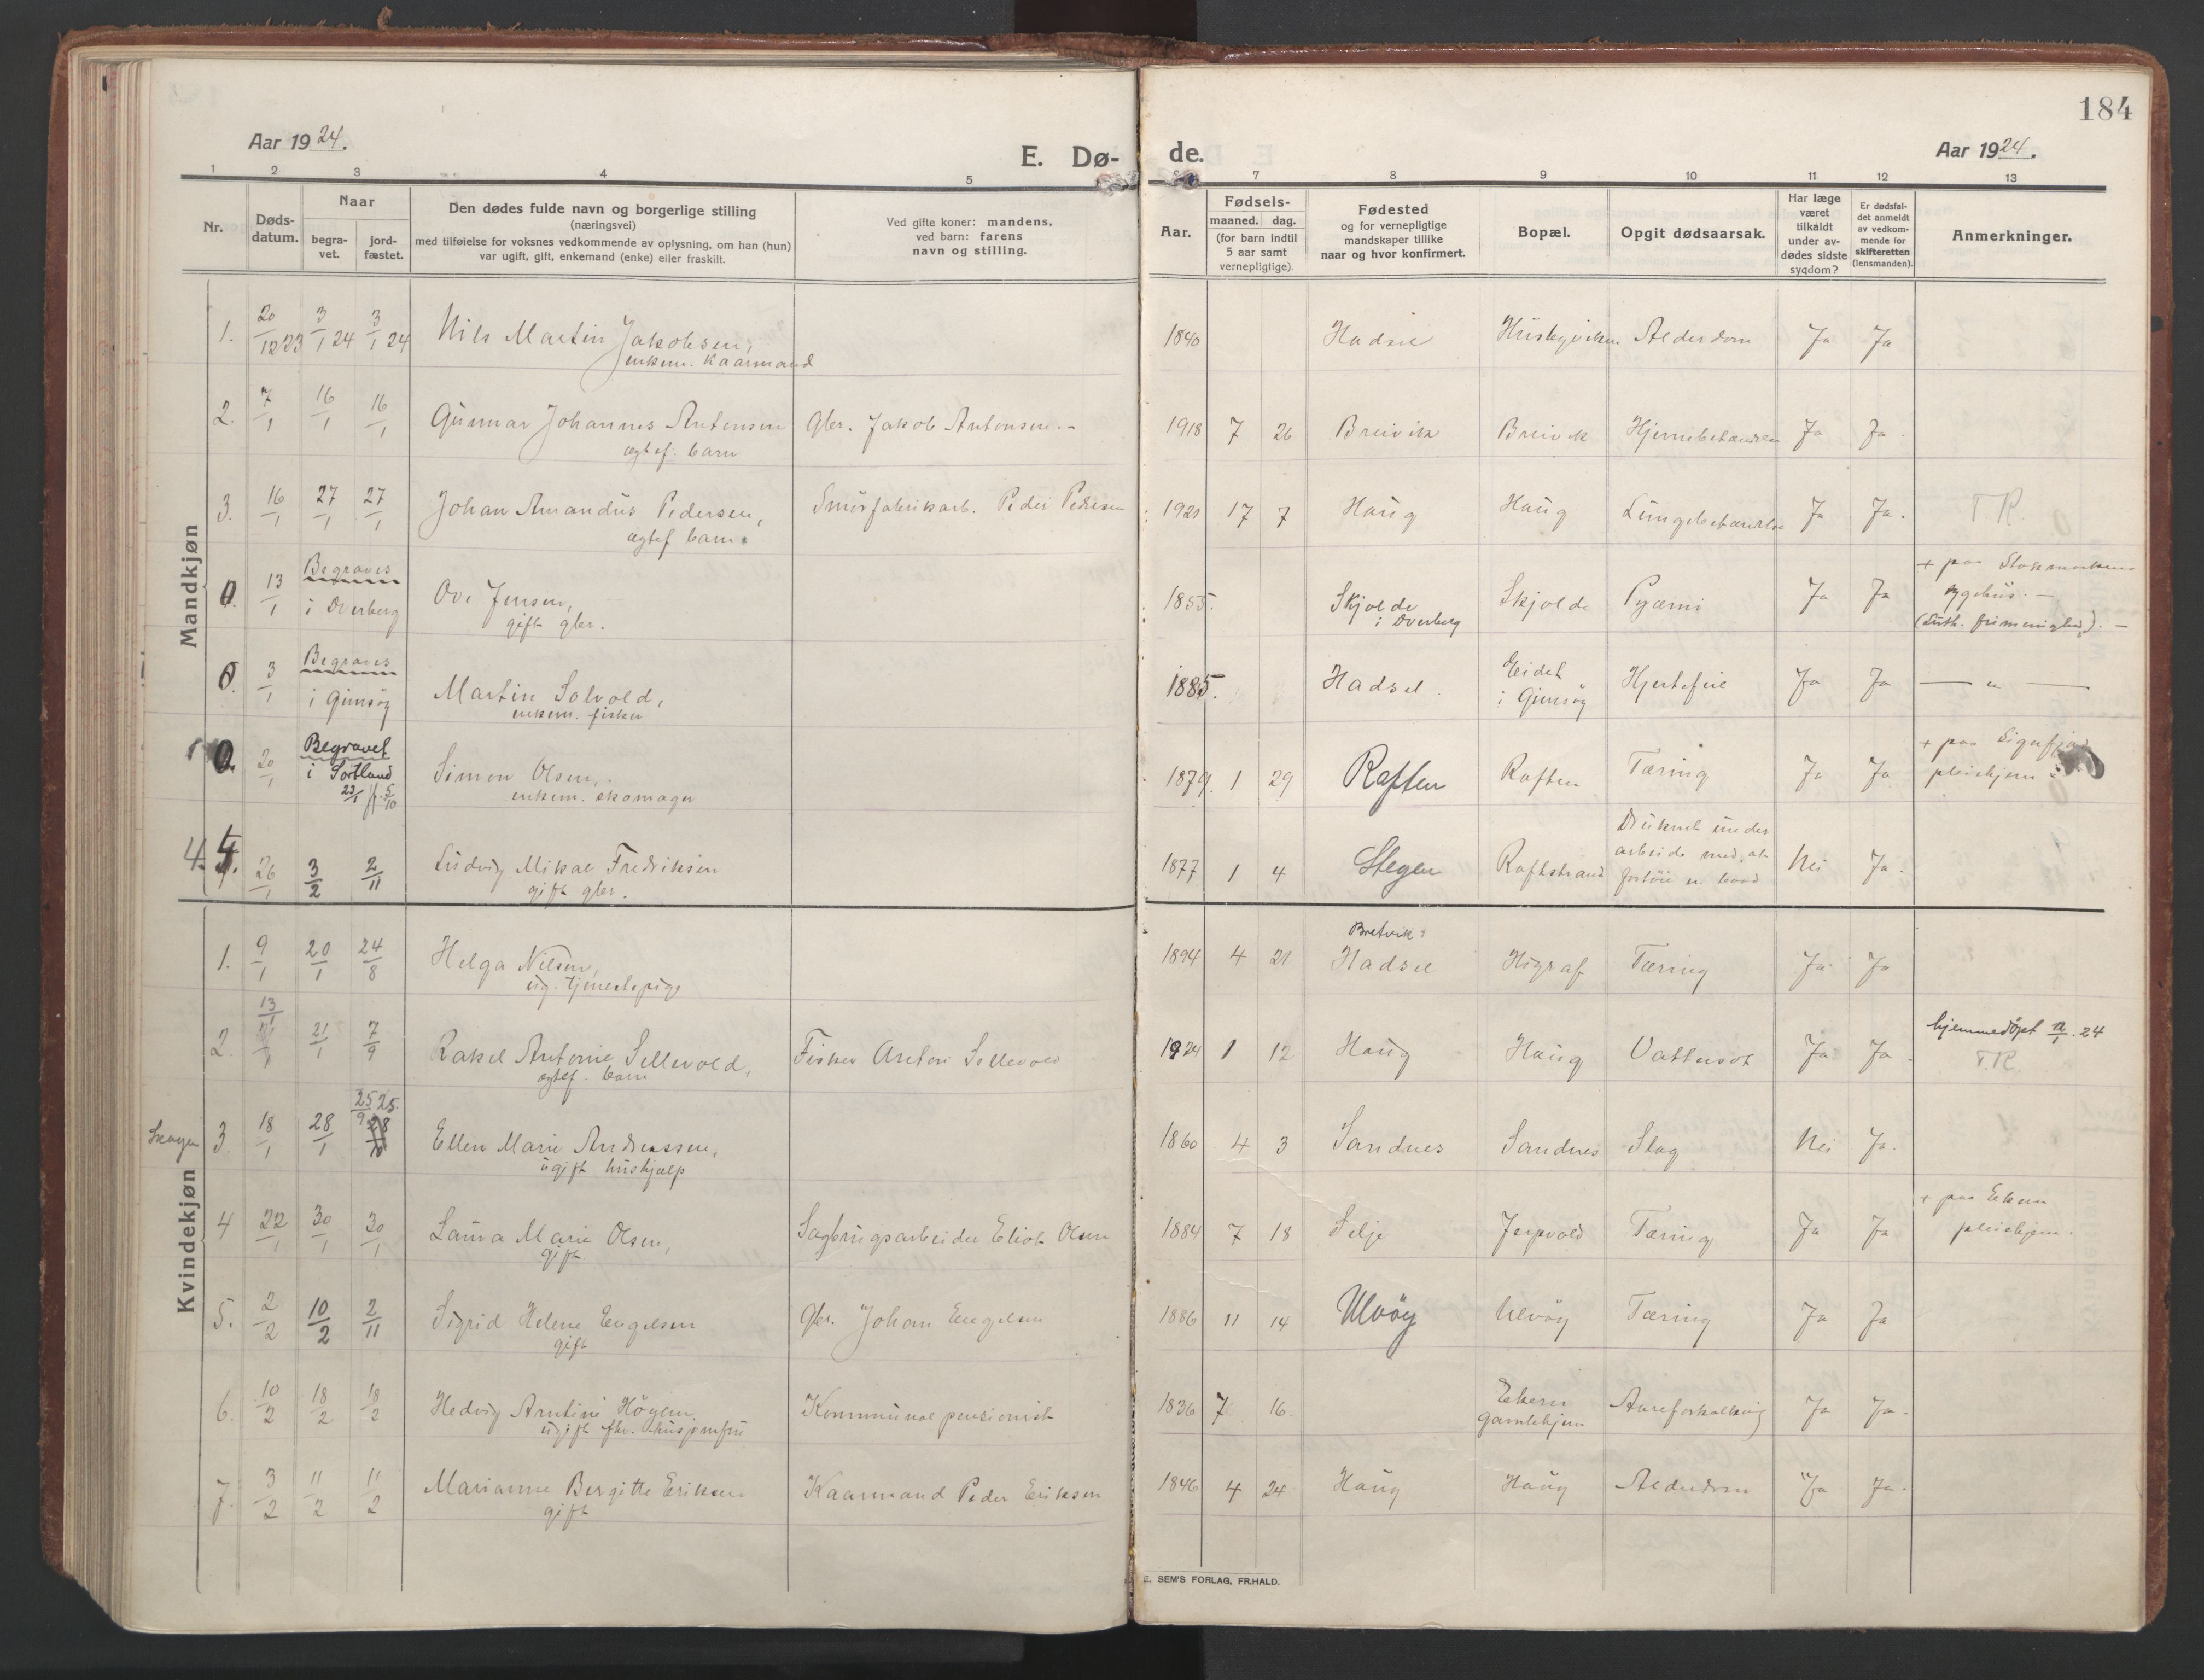 184
Aar 1924.
E. Dø-
de.
Aar 1924.
1 2 3 4 5 7 8 9 10 11 12 13
Nr.
Døds-
datum.
Naar
begra-
vet.
jord-
fæstet.
Den dødes fulde navn og borgerlige stilling
(næringsvei)
med tilføielse for voksnes vedkommende av oplysning, om han (hun)
var ugift, gift, enkemand (enke) eller fraskilt.
Ved gifte koner: mandens.
ved barn: farens
navn og stilling.
Aar.
Fødsels-
maaned. dag.
(for barn indtil
5 aar samt
vernepligtige)
Fødested
og for vernepligtige
mandskaper tillike
naar og hvor konfirmert.
Bopæl.
Opgit dødsaarsak.
Har læge
været
tilkaldt
under av-
dødes sidste
sygdom?
Er dødsfal-
det anmeldt
av vedkom-
mende for
skifteretten
(lensmanden).
Anmerkninger.
Mandkjøn
1. 20/12 23 3/1 24 3/1 24 Nils Martin Jakobsen, 1840 Hadsel Husbyviken Alderdom Ja Ja
enkem. kaarmand
2. 7/1 16/1 16/1 Gunnar Johannes Antonsen Gbr. Jakob Antonsen.- 1918 7 26 Breivik Breivik Hjernebetændelse Ja Ja
ægtef. barn
3. 16/1 27/1 27/1 Johan Amandus Pedersen, Smörfabrikarb. Peder Pedersen 1921 17 7 Haug Haug Lungebetændelse Ja Ja. T.R.
ægtef barn.
0. 13/1 Begraves
i Dverberg
Ove Jensen, 1855. Skjolde
i Dverberg
Skjolde Pyæmi Ja Ja + paa Stokmarknes
sygehus. -
(Luth. frimenighed). -
gift gbr.
0. 3/1 Begraves
i Gimsøy
Martin Solvold, 1885. Hadsel. Eidet
i Gimsøy
Hjertefeil Ja Ja — " —
enkem. fisker
0. 20/1 Begravet
i Sortland
23/1 jf. 5/10
Simon Olsen, 1879. 1 29 Raften Raften Tæring Ja Ja + paa Sigerfjord
pleiehjem
enkem. skomager
4. 4. 26/1 3/2 2/11 Ludvig Mikal Fredriksen 1877 1 4 Stegen Raftstrand Druknet under
arbeide med at
fortöie en baad
Nei Ja.
gift gbr.
Kvindekjøn
1. 9/1 20/1 24/8 Helga Nilsen, 1894 4 21 Bretvik:
Hadsel Higraf Tæring Ja Ja
ug. tjenestepige
2. 13/1 21/1 7/9 Rakel Antonie Sellevold, Fisker Anton Sellevold 1924 1 12 Haug Haug Vattersot Ja Ja. hjemmedöpt 12/1. 24
T.R.
ægtef. barn
3. 18/1 28/1 25/9 25. Ellen Marie Andreassen, 1860 4 3 Sandnes Sandnes Slag Nei Ja.
ugift hushjælp
4 22/1 30/1 30/1 Laura Marie Olsen, Sagbrugsarbeider Eliot Olsen 1884 7 18 Selje Jerpvold Tæring Ja Ja + paa Ekern
pleiehjem.
gift
5. 2/2 10/2 2/11 Sigrid Helene Engelsen Gbr. Johan Engelsen 1886 11 14 Ulvöy Ulvöy Tæring Ja Ja
gift
6. 10/2 18/2 18/2 Hedvig Arntine Höyem Kommunal pensionist 1836 7 16. Ekern
gamlehjem
Aareforkalkning Ja Ja.
ugift fhv. husjomfru
7. 3/2 11/2 11/2 Marianne Bergitte Eriksen Kaarmand Peder Eriksen 1846 4 24 Haug Haug Alderdom Ja Ja.
gift
E. SEM'S FORLAG, FR.HALD.